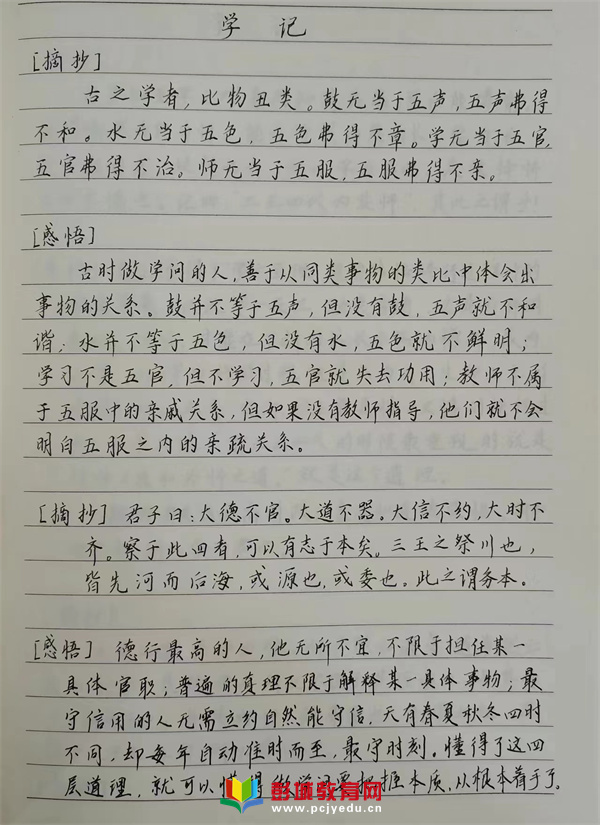 学 记
[摘抄]
古之学者，比物丑类。鼓无当于五声，五声弗得
不和。水无当于五色，五色弗得不章。学无当于五官，
五官弗得不治。师无当于五服，五服弗得不亲。
[感悟]
古时做学问的人，善于以同类事物的类比中体会出
事物的关系。鼓并不等于五声，但没有鼓，五声就不和
谐；水并不等于五色，但没有水，五色就不鲜明；
学习不是五官，但不学习，五官就失去功用；教师不属
于五服中的亲戚关系，但如果没有教师指导，他们就不会
明白五服之内的亲疏关系。
[摘抄] 君子曰：大德不官。大道不器。大信不约，大时不
齐。察于此四者，可以有志于本矣。三王之祭川也，
皆先河而后海，或源也，或委也。此之谓务本。
[感悟] 德行最高的人，他无所不宜，不限于担任某一
具体官职；普遍的真理不限于解释某一具体事物；最
守信用的人无需立约自然能守信，天有春夏秋冬四时
不同，却每年自动准时而至，最守时刻。懂得了这四
层道理，就可以懂得做学问要把握本质，从根本着手了。
彭城教育网
www.pcjyedu.cn